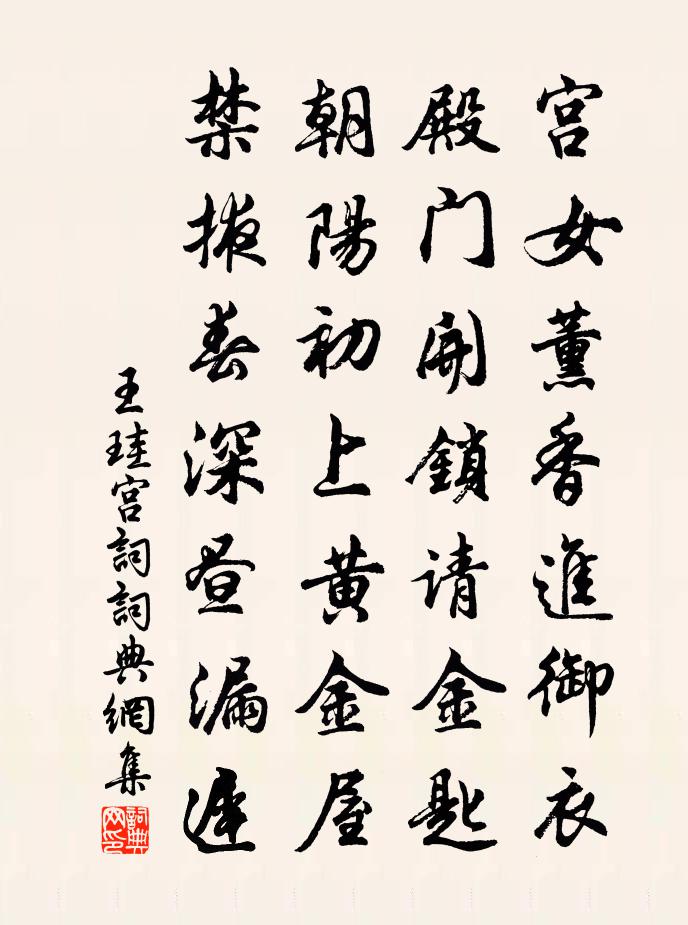 宫女薰香進御衣
殿门開鎖请金匙
朝陽初上黄金屋
禁掖春深昼漏遲
王珪宫詞詞典網集
詞典网印